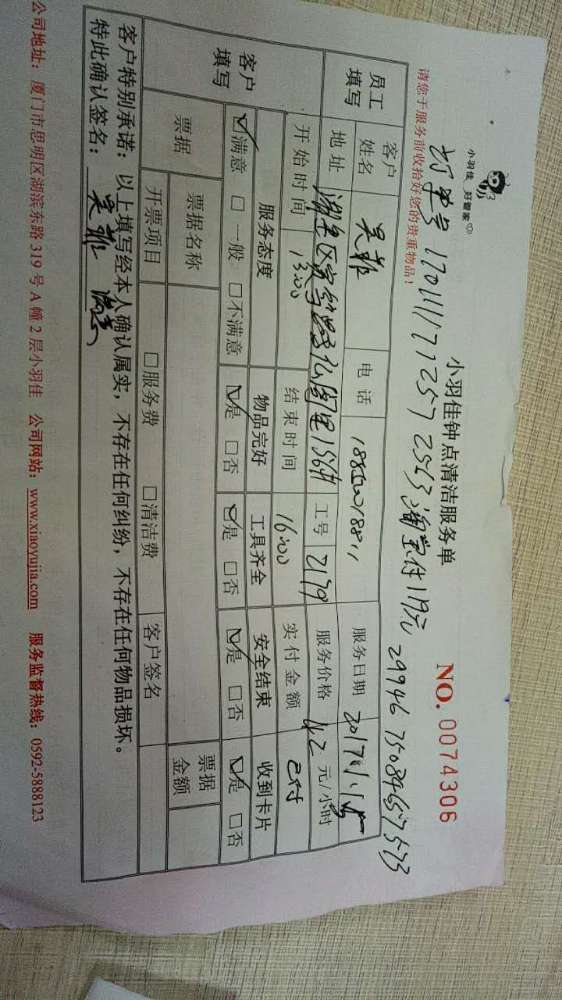 小羽佳 好管家
小羽佳钟点清洁服务单
NO. 0074306
请您于服务前收拾好您的贵重物品!
订单号 1701111712572513 淘宝付119元 2994675084657573
员工填写
客户姓名 吴菲 电话 服务日期 2017.1.1
地址 工号 2179 服务价格 42 元/小时
开始时间 13:00 结束时间 16:00 实付金额 已付
客户填写
服务态度 物品完好 工具齐全 安全结束 收到卡片
☑满意 □一般 □不满意 ☑是 □否 ☑是 □否 ☑是 □否 ☑是 □否
票据 票据名称 票据金额
开票项目 □服务费 □清洁费 客户签名
客户特别承诺:以上填写经本人确认属实,不存在任何纠纷,不存在任何物品损坏。
特此确认签名: 吴菲 满意
公司地址:厦门市思明区湖滨东路319号A幢2层小羽佳 公司网站:www.xiaoyujia.com 服务监督热线:0592-5888123